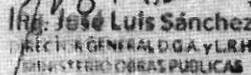 Ing. José Luis Sánchez
DIRECTOR GENERAL D.G.A. y L.R.H
MINISTERIO OBRAS PUBLICAS